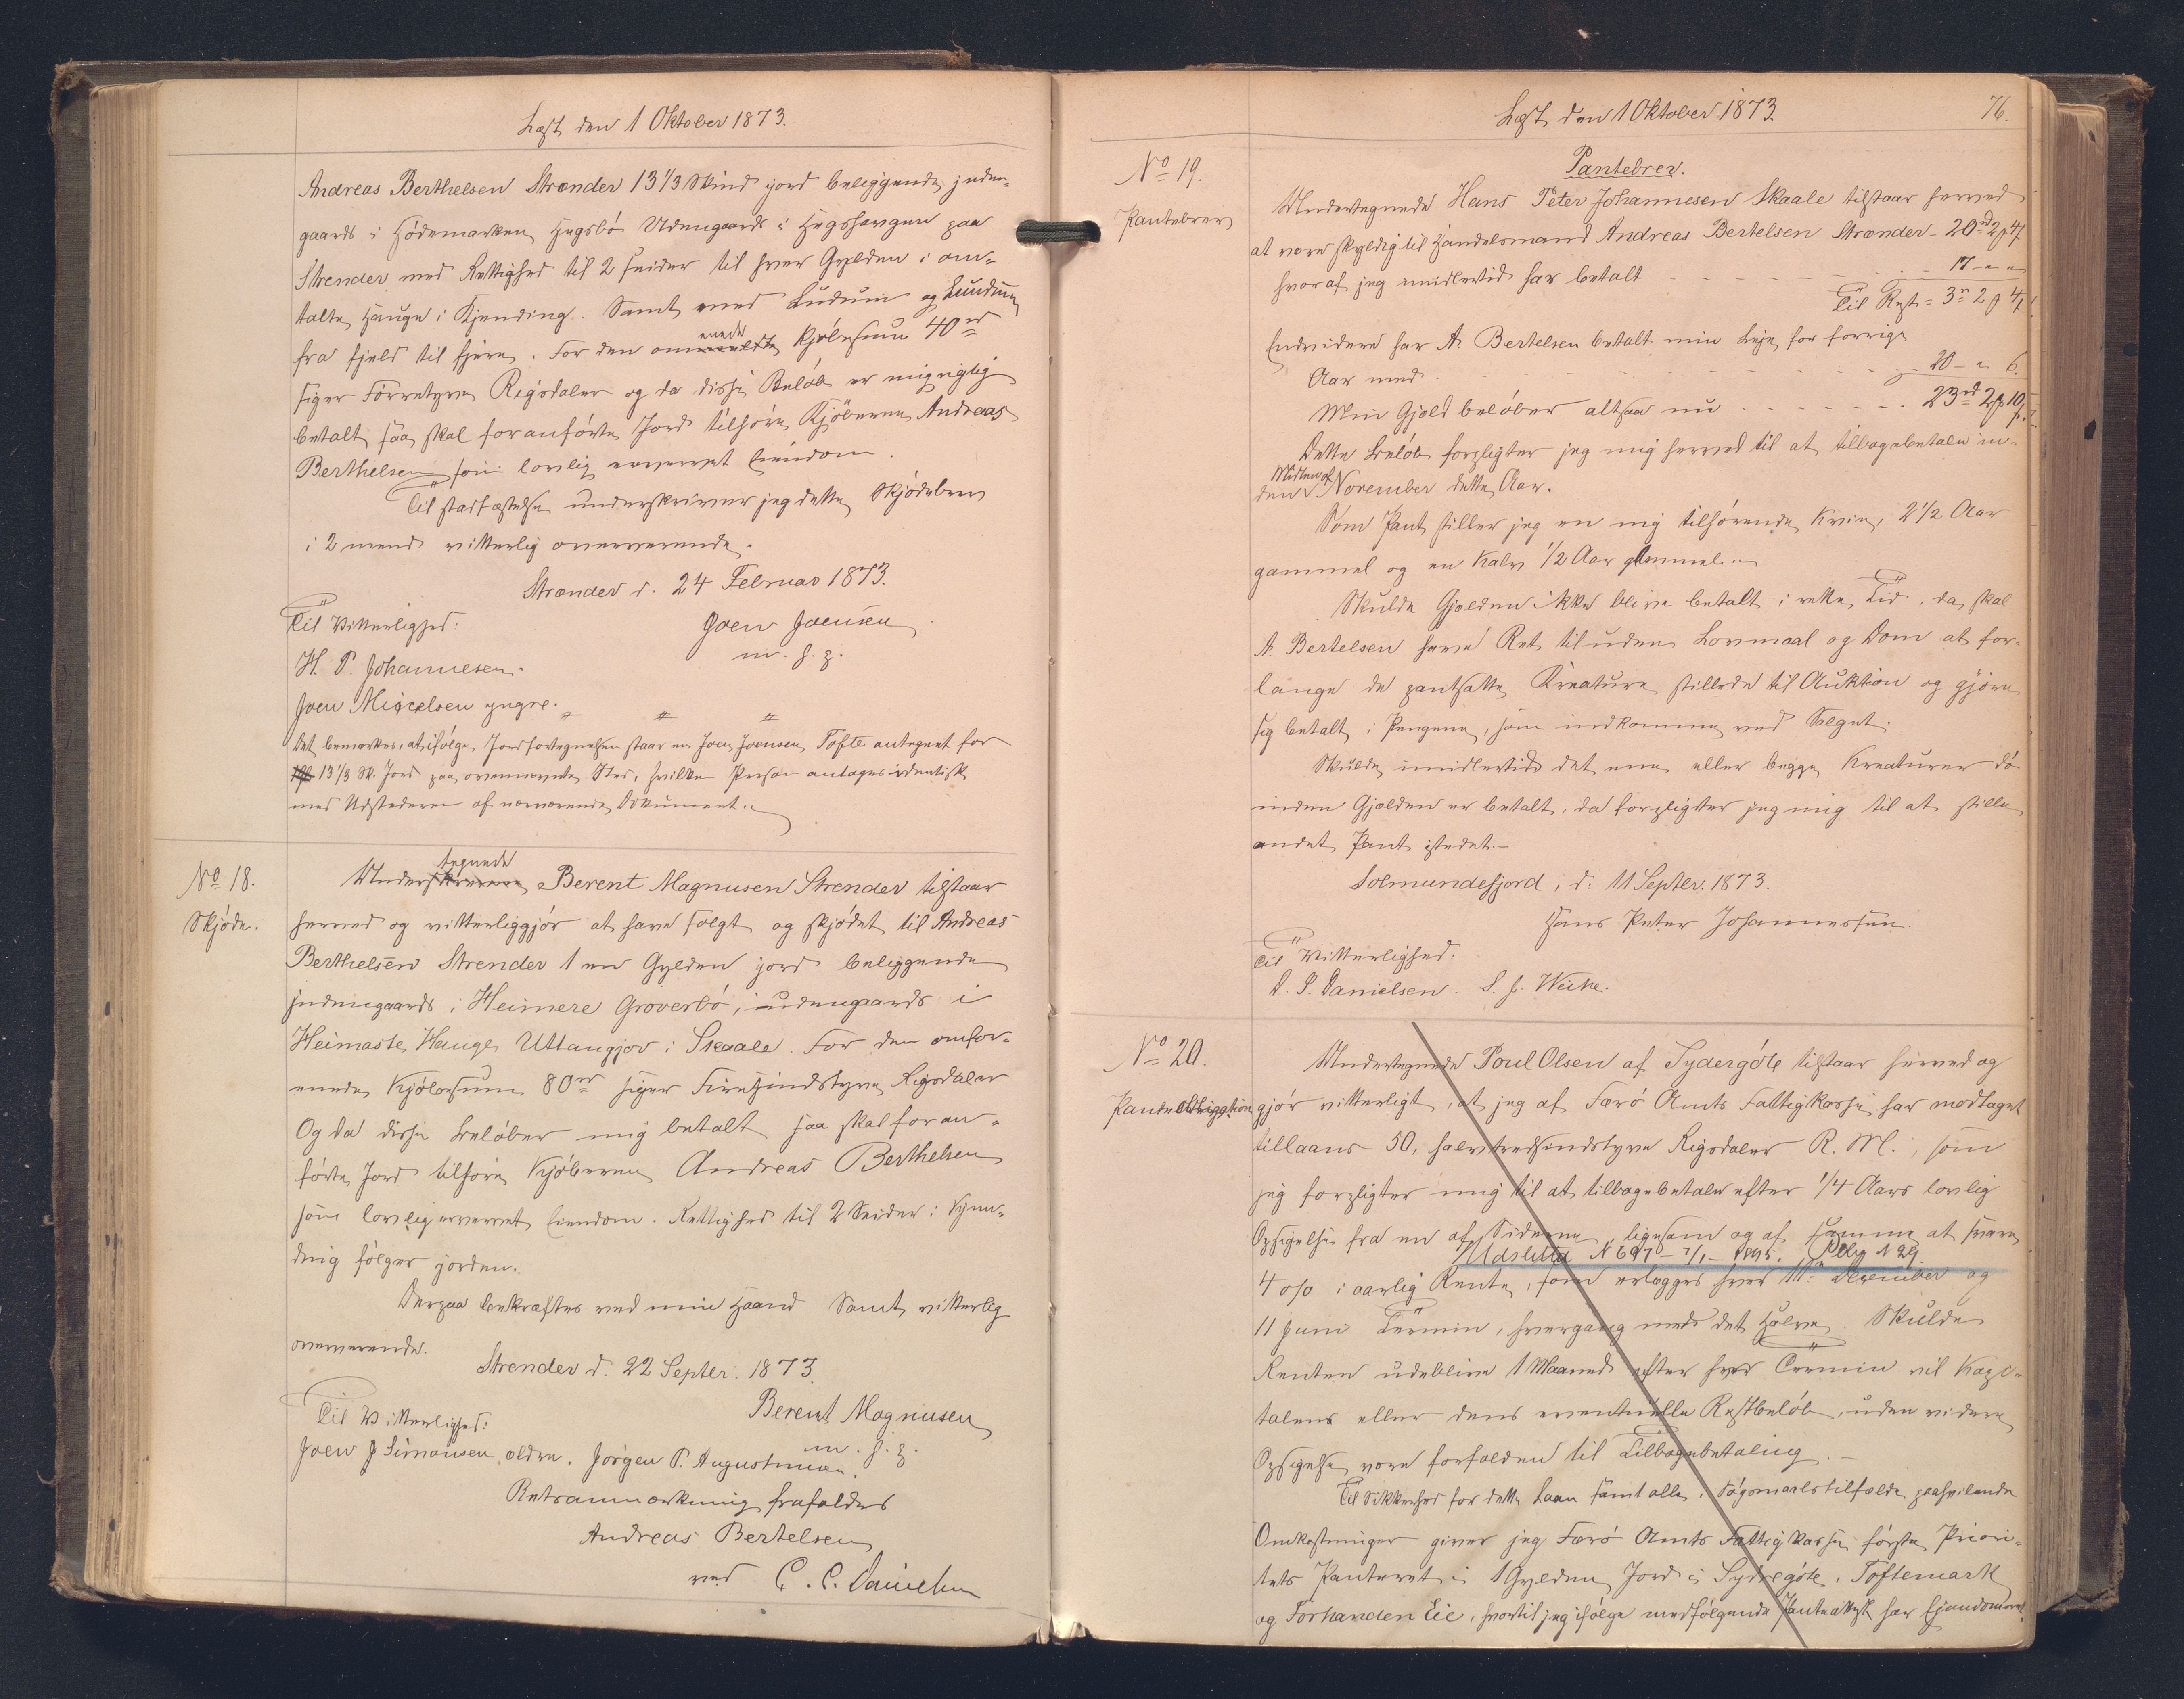 Læst den 1 Oktober 1873.
Andreas Berthelsen Strender 13 1/3 Skind jord beliggende inden-
gaards i Hödemarken Hugsbö Udengaards i Hugshaugen paa
Strender med Rettighed til 2 Seider til hver Gylden i om-
talte Hauge i Kjending. Samt med Ludum og Lundum
fra fjeld til fjære. For den om enede Kjöbesum 40 rd
siger Förretyve Rigsdaler og da disse Belöb er mig rigtig
betalt saa skal foranförte Jord tilhöre Kjöberen Andreas
Berthelsen som lovlig erværvet Eiendom.
Til stadfæstelse underskriver jeg dette Skjödebrev
i 2 mænds vitterlig overværende.
Strender d. 24 Februar 1873.
Til Vitterlighed: Joen Joensen
H. P. Johannesen. m. f. p.
Joen Micelsen yngre.
Det bemærkes, at ifölge Jordfortegnelsen staar en Joen Joensen Tofte antegnet for
13 1/3 Sk. Jord paa ovennævnte Sted, hvilken Person antages identisk
med Udstederen af nærværende Dokument.
No 18.
Skjöde.
Under tegnede Berent Magnusen Strender tilstaar
herved og vitterliggjör at have solgt og skjödet til Andreas
Berthelsen Strender 1 en Gylden jord beliggende
indengaards i Heimere Groverbö, udengaards i
Heimaste Hauge Uttangjov i Skaale. For den omfor-
enede Kjöbesum 80 rd siger Firesindstyve Rigsdaler
Og da disse Belöber mig betalt saa skal foran-
förte Jord tilhöre Kjöberen Andreas Berthelsen
som lovlig erværvet Eiendom. Rettighed til 2 Seider i Kjen-
ding fölger jorden.
Derpaa bekræftes ved min Haand Samt vitterlig
overværende.
Strender d. 22 Septbr. 1873.
Til Vitterlighed: Berent Magnusen
Joen J Simonsen ældre. Jörgen P. Augustinus. m. f. p.
Retsanmærkning frafaldes
Andreas Bertelsen
ved C. C. Danielsen
Læst den 1 Oktober 1873. 76.
No 19.
Pantebrev
Pantebrev.
Undertegnede Hans Peter Johannesen Skaale tilstaar herved
at være skyldig til Handelsmand Andreas Bertelsen Strender - 20 rd 2 ß 4
hvoraf jeg imidlertid har betalt - - - 17 - " "
Til Rest = 3 rd 2 ß 4
Endvidere har A. Bertelsen betalt min Leje for forrige
Aar med - - - 20 - " 6.
Min Gjæld belöber altsaa nu - - - 23 rd 2 ß 10
Dette Belöb forpligter jeg mig herved til at tilbagebetale in-
den Midten af November dette Aar.
Som Pant stiller jeg en mig tilhörende Kvie, 2 1/2 Aar
gammel og en Kalv 1/2 Aar gammel.
Skulde Gjælden ikke blive betalt i rette Tid, da skal
A. Bertelsen have Ret til uden Lovmaal og Dom at for-
lange de pantsatte Kreature stillede til Auktion og gjöre
sig betalt i Pengene, som indkomme ved Salget.
Skulde imidlertid det ene eller begge Kreaturer dö
inden Gjælden er betalt, da forpligter jeg mig til at stille
andet Pant istedet.-
Solmundefjord, d. 11 Septbr. 1873.
Hans Peter Johannessen.
Til Vitterlighed:
D. P. Danielsen. S. J. Weihe.
No 20.
Panteobligation
Undertegnede Poul Olsen af Sydergöte tilstaar herved og
gjör vitterligt, at jeg af Færö Amts Fattigkasse har modtaget
tillaans 50, halvtredsindstyve Rigsdaler R. M., som
jeg forpligter mig til at tilbagebetale efter 1/4 Aars lovlig
Opsigelse fra en af Siderne, ligesom og af samme at svare
Udslettet N 697 - 7/1
4 o/o i aarlig Rente, som erlægges hver 11te Dezember og
11 Juni Termin, hvergang med det Halve. Skulde
Renten udeblive 1 Maaned efter hver Termin vil Kapi-
talens eller dens eventuelle Restbelöb, uden videre
Opsigelse være forfalden til Tilbagebetaling.
Til Sikkerhed for dette Laan samt alle i Sögsmaalstilfælde paahvilende
Omkostninger giver jeg Færö Amts Fattigkasse förste Priori-
tets Panteret i 1 Gylden Jord i Sydregöte, Toftemark
og Torhanden Eie, hvortil jeg ifölge medfölgende Panteattest har Ejendoms